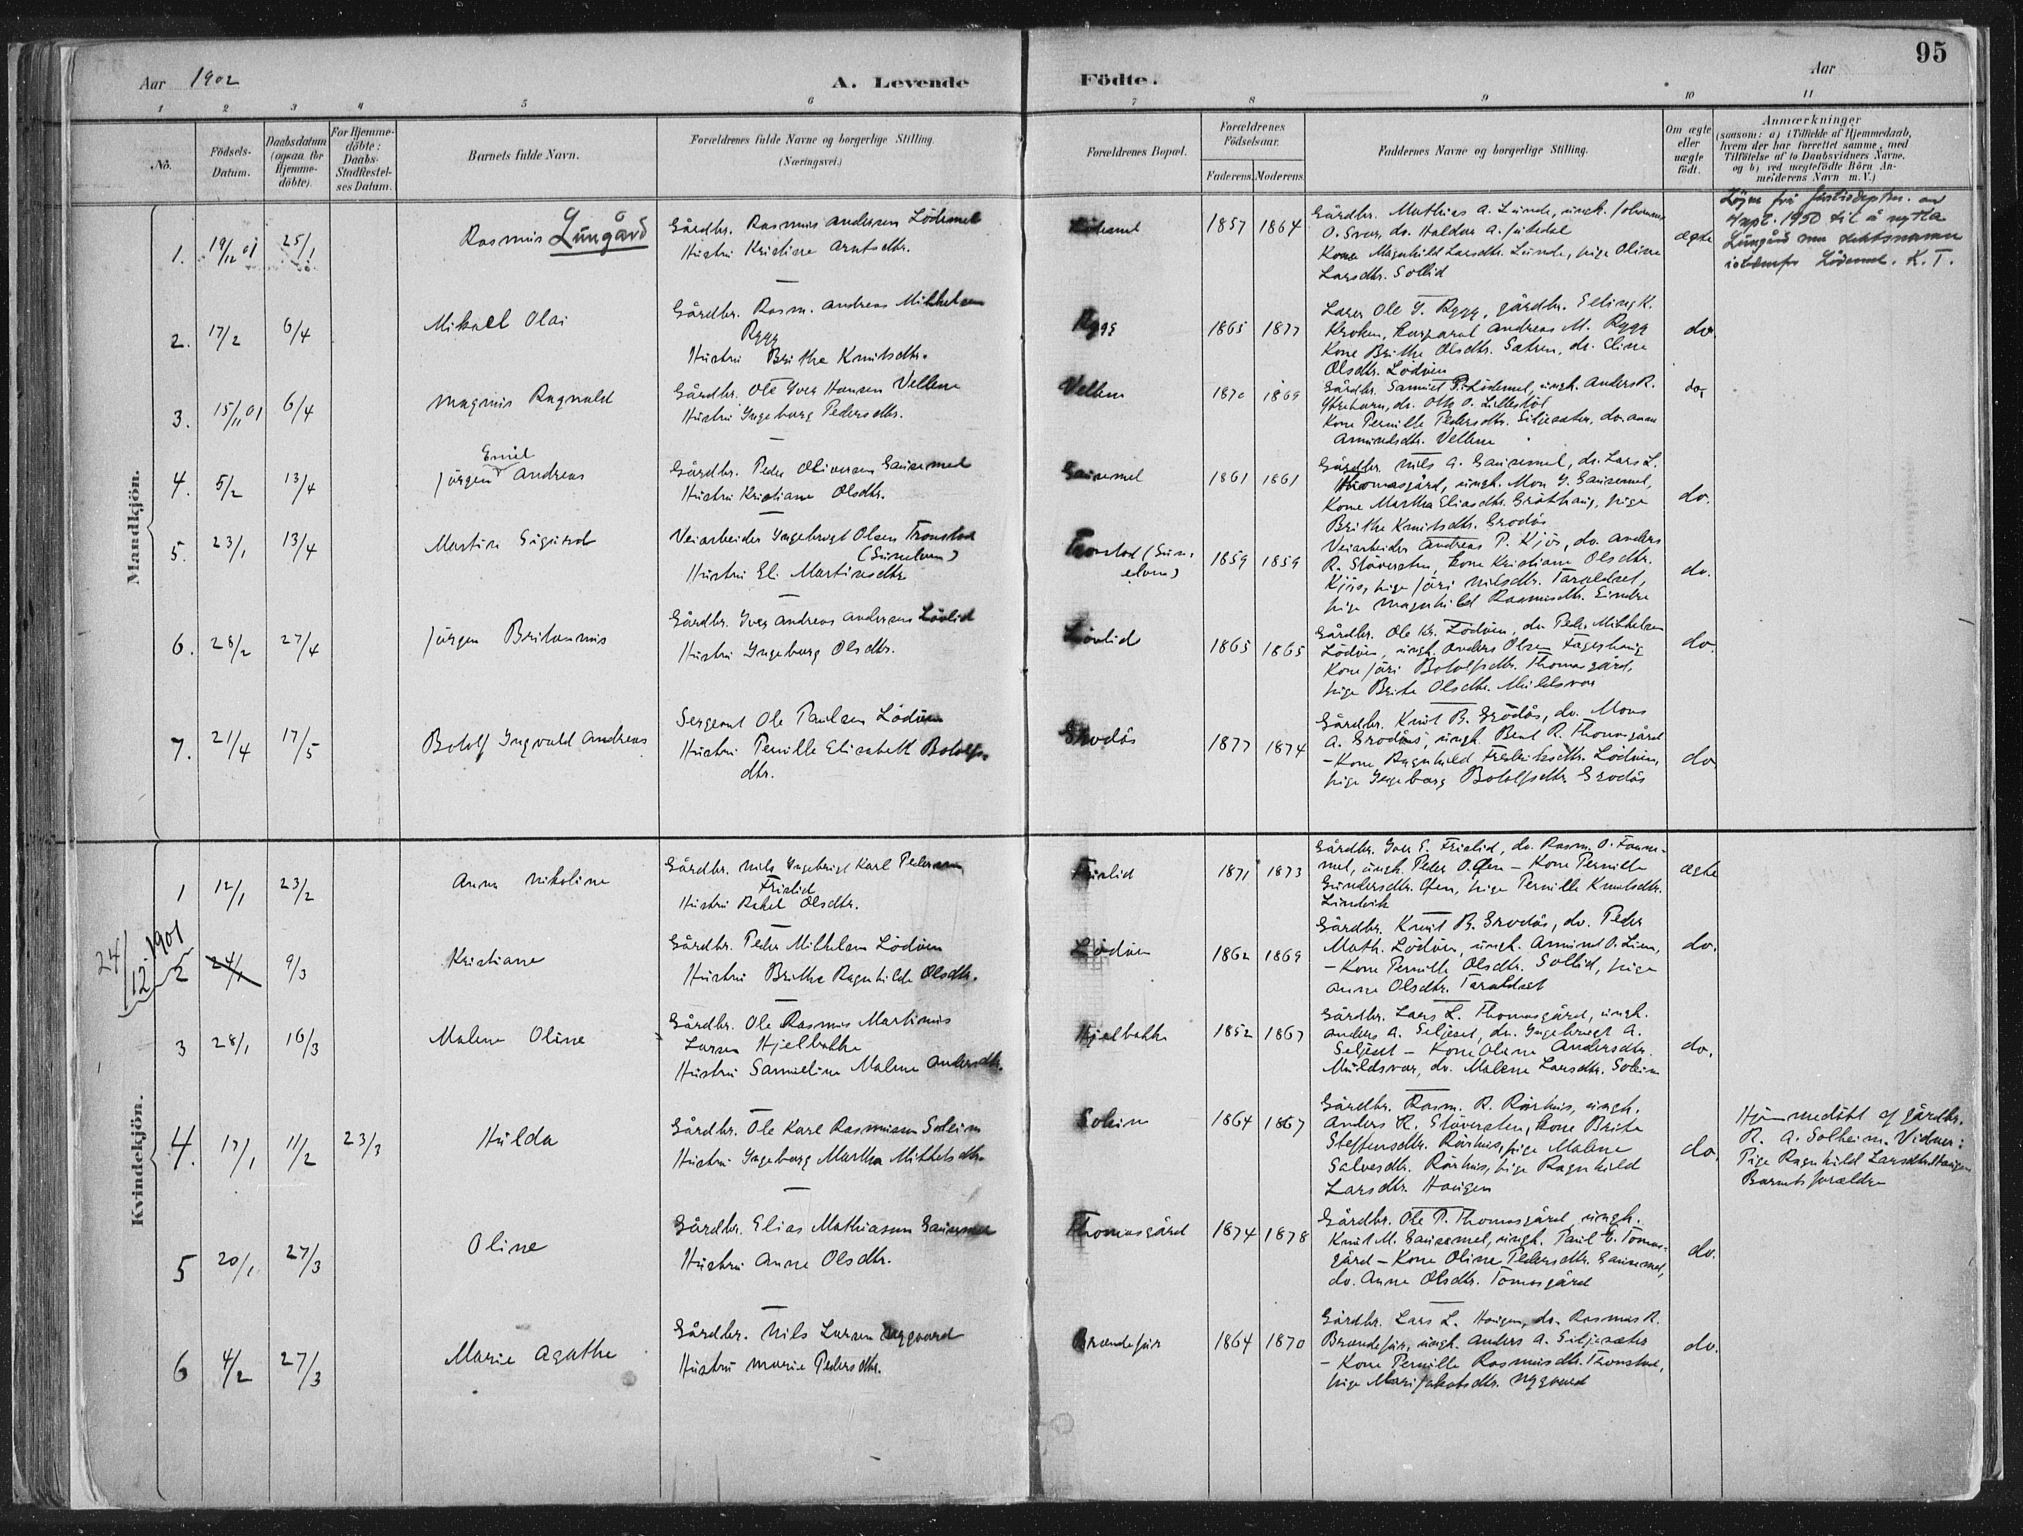 95
Aar 1902
A. Levende Födte.
Aar
1 2 3 4 5 6 7 8 9 10 11
No.
Födsels-Datum.
Daabsdatum (ogsaa for Hjemme-döbte).
For Hjemme-döbte: Daabs-Stadfestel-ses Datum.
Barnets fulde Navn.
Forældrenes fulde Navne og borgerlige Stilling.
(Næringsvei.)
Forældrenes Bopæl.
Forældrenes Födselsaar.
Faderens. Moderens.
Faddernes Navne og borgerlige Stilling.
Om ægte eller uægte födt.
Anmærkninger
(saasom: a) i Tilfælde af Hjemmedaab,
hvem der har forrettet samme, med
Tilföielse af to Daabsvidners Navne,
og b) ved uægtefödte Börn An-
melderens Navn m. V.)
Mandkjön.
1. 19/12 01 25/1 Rasmus Lungård
Gårdbr. Rasmus Andersen Lödemel
Hustru Kristiane Arntsdtr.
Lödemel 1857 1864
Gårdbr. Mathias A. Lunde, ungk. Johannes
Kone Magnhild Larsdtr. Lunde, pige Oline
Larsdtr. Sollid
ægte
1950 til å nytta
Lungård
Lödemel. K. T.
2. 17/2 6/4 Mikael Olai
Gårdbr. Rasm. Andreas Mikkelsen
Rygg
Hustru Brithe Knutsdtr.
Rygg 1865 1877
Lærer Ole Y. Rygg, gårdbr. Eling K.
Kroken, Korporal Andreas M. Rygg
Kone Brithe Olsdtr. Sætren, do. Eline
Olsdtr. Lödöen
do.
3. 15/11 01 6/4 Magnus Ragnvald
Gårdbr. Ole Iver Hansen Vellene
Hustru Ingeborg Pedersdtr.
Vellene 1870 1869
Gårdbr. Samuel P. Lödemel, ungk. Anders R.
Ytrehorn, do. Otto O. Lillestöl
Kone Pernille Pedersdtr. Siljesæter, do. Anne
Amundsdtr. Vellene
do,
4. 5/2 13/4 Jörgen Emil Andreas
Gårdbr. Peder Oliversen Gausemel
Hustru Kristiane Olsdtr.
Gausemel 1861 1861
Gårdbr. Nils A. Gausemel, do. Lars L.
Thomasgård, ungk. Mon Y. Gausemel,
Kone Martha Eliasdtr. Gröthaug, pige
Brithe Knutsdtr. Grodås
do.
5. 23/1 13/4 Martin Sigurd
Veiarbeider Ingebrigt Olsen Tronstad
(Sunelven)
Hustru Eli Martinusdtr.
Tronstad (Sun-
elven) 1859 1859
Veiarbeider Andreas P. Kjös, do. Anders
R. Stöversten, Kone Kristiane Olsdtr.
Kjös, pige Jóri Nilsdtr. Taraldset,
pige Magnhild Rasmusdtr. Lindre
do.
6. 28/2 27/4 Jörgen Britanus
Gårdbr. Iver Andreas Andersen Lövlid
Hustru Ingeborg Olsdtr.
Lövlid 1865 1865
Gårdbr. Ole Kr. Lödöen, do. Peder Mikkelsen
Lödöen, ungk. Anders Olsen Fageshaug
Kone Jóri Botolfsdtr. Thomasgård,
pige Brite Olsdtr. Muldsvor
do.
7. 21/4 17/5 Botolf Ingvald Andreas
Sergeant Ole Paulsen Lödöen
Hustru Pernille Elisabeth Botolfs-
dtr.
Grodås 1877 1874
Gårdbr. Knut B. Grodås, do. Mons
A. Grodås, ungk. Bent R. Thomasgård
- Kone Ragnhild Fredriksdtr. Lödöen,
pige Ingeborg Botolfsdtr. Grodås
do
Kvindekjön.
1 12/1 23/2 Anna Nikoline
Gårdbr. Nils Ingebrigt Karl Pedersen
Frislid
Hustru Rakel Olsdtr.
Frislid 1871 1873
Gårdbr. Iver E. Frislid, do. Rasm. O.
mel, ungk. Peder O. - Kone Pernille
Gundersdtr. pige Pernille Knutsdtr.
Lindvik
ægte
24/12 1901
2 24/1 9/3 Kristiane
Gårdbr. Peder Mikkelsen Lödöen
Hustru Brithe Ragnhilde Olsdtr.
Lödöen 1862 1869
Gårdbr. Knut B. Grodås, do. Peder
Math. Lödöen, ungk. Amund O.
- Kone Pernille Olsdtr. Sollid, pige
Anne Olsdtr. Taraldset
do.
3 28/1 16/3 Malene Oline
Gårdbr. Ole Rasmus Martinus
Larsen Hjelbakke
Hustru Samueline Malene Andersdtr.
Hjelbakke 1852 1867
Gårdbr. Lars L. Thomasgård, ungk.
Anders A. Seljeset, do. Ingebrigt A.
Seljeset - Kone Oline Andersdtr.
Muldsvor, do. Malene Larsdtr. Soleim
do.
4. 17/1 11/2 23/3 Hulda
Gårdbr. Ole Karl Rasmussen Soleim
Hustru Ingeborg Martha Mikkelsdtr.
Soleim 1864 1867
Gårdbr. Rasm. R. Rörhus, ungk.
Anders R. Stöversten, Kone Brite
Steffensdtr. Rörhus, pige Malene
Salvesdtr. Rörhus, pige Ragnhild
Larsdtr. Haugen
do.
Hjemmedöbt af gårdbr.
R. A. Solheim. Vidner:
Pige Ragnhild Larsdtr. Haugen
Barnets forældre
5 20/1 27/3 Oline
Gårdbr. Elias Mathiasen Gausemel
Hustru Anne Olsdtr.
Thomasgård 1874 1878
Gårdbr. Ole P. Thomasgård, ungk.
Knut M. Gausemel, ungk. Paul E. Tomas-
gård - Kone Oline Pedersdtr. Gausemel,
do. Anne Olsdtr. Tomasgård
do.
6 4/2 27/3 Marie Agathe
Gårdbr. Nils Larsen Nygaard
Hustru Marie Pedersdtr.
Brændefur 1864 1870
Gårdbr. Lars L. Haugen, do. Rasmus R.
Brændefur, ungk. Anders A. Siljesæter
- Kone Pernille Rasmusdtr. Tronstad,
pige Mari Jakobsdtr. Nygaard
do.